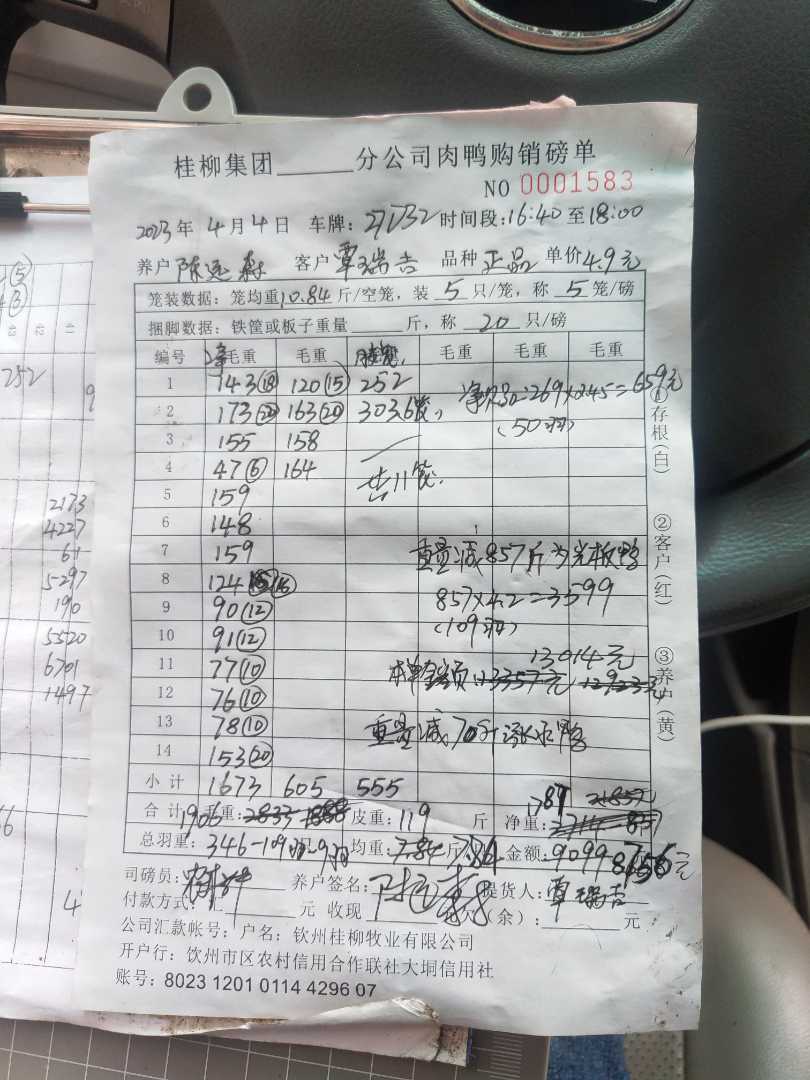 桂柳集团______分公司肉鸭购销磅单
NO 0001583
2023年 4月4日 车牌: 时间段:16:40至18:00
养户 陈远森 客户 覃瑞吉 品种 正品 单价4.9元
笼装数据: 笼均重10.84斤/空笼, 装 5 只/笼, 称 5 笼/磅
捆脚数据: 铁筐或板子重量______斤, 称 20 只/磅
编号 毛重 毛重 毛重 毛重 毛重
1 143(18) 120(15) 252 269×2.45=659元
2 173(20) 163(20) 303 6笼 (50羽)
3 155 158
4 47(6) 164 共11笼
5 159
6 148
7 159 重量减857斤为光板鸭
8 124(16) 857×4.2=3599
9 90(12) (109羽)
10 91(12) 13014元
11 77(10) 本单金额 13357元
12 76(10)
13 78(10) 重量减70斤
14 153(20)
小计 1673 605 555
合计 毛重:1906 皮重:119 斤 净重:1787
总羽重:346-109 均重:7.84 金额:9099 元
司磅员: 养户签名: 提货人:覃瑞吉
付款方式: 元 收现 (余):______元
公司汇款帐号: 户名: 钦州桂柳牧业有限公司
开户行: 钦州市区农村信用合作联社大垌信用社
账号: 8023 1201 0114 4296 07
①存根(白)
②客户(红)
③养户(黄)
252
2173
4227
61
5297
190
5520
6701
1497